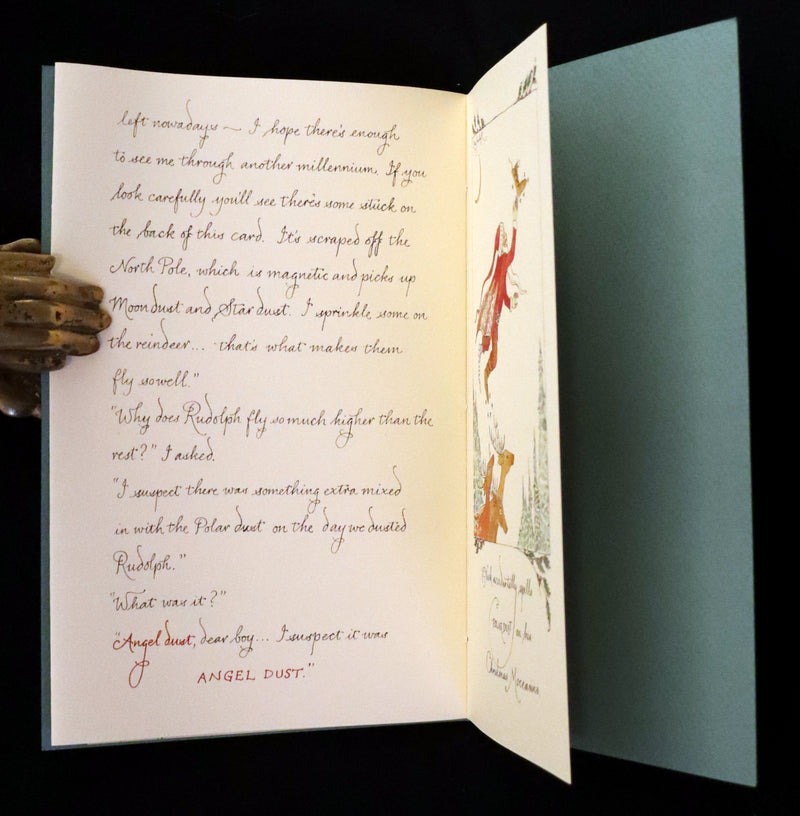 left nowadays ~ I hope there's enough
to see me through another millennium. If you
look carefully you'll see there's some stuck on
the back of this card. It's scraped off the
North Pole, which is magnetic and picks up
Moondust and Stardust. I sprinkle some on
the reindeer... that's what makes them
fly so well."
"Why does Rudolph fly so much higher than the
rest?" I asked.
"I suspect there was something extra mixed
in with the Polar dust on the day we dusted
Rudolph."
"What was it?"
"Angel dust, dear boy... I suspect it was
ANGEL DUST."
accidentally spills
on his
Christmas